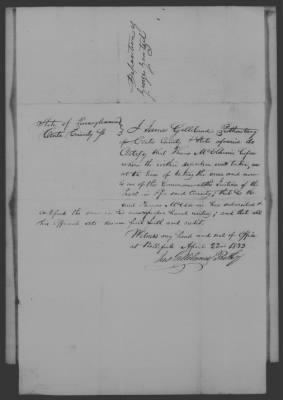 Deposition of
George
State of Pennsylvania
Centre County ss
I James Gilliland Prothonotary
for Centre County & State aforesaid do
Certify that James McManus before
whom the within deposition was taken, was
at the time of taking the same and now
is one of the Commonwealth's Justices of the
Peace in sd County, that he the
said James McManus has subscribed &
certified the same in his own proper hand writing; and that all
his official acts deserve full faith and credit.
Witness my hand and seal of Office
at Bellefonte April 22nd 1833
Jas Gilliland Prothy